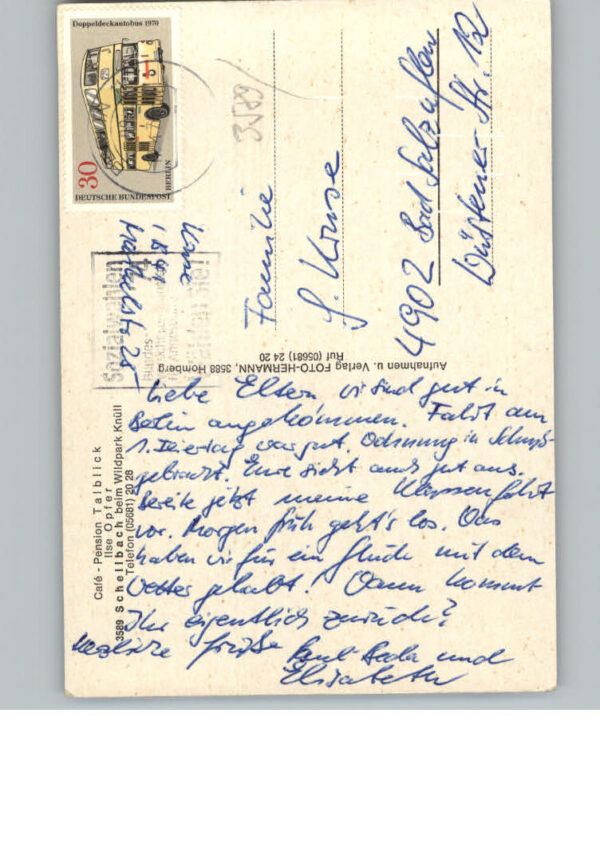 Doppeldeckautobus 1970
30
DEUTSCHE BUNDESPOST
BERLIN
3589
Kruse
1 B 41
25
Sozialwahlen
Bundes
Familie
G. Kruse
4902 Bad Salzuflen
Wüstener Str. 12
Aufnahmen u. Verlag FOTO-HERMANN, 3588 Homberg
Ruf (05681) 24 20
Café - Pension Talblick
Ilse Opfer
3589 Schellbach beim Wildpark Knüll
Telefon (05681) 20 28
Liebe Eltern wir sind gut in
Berlin angekommen. Fahrt am
1. Feiertag war gut. Ordnung in
gebracht. Eure sieht auch gut aus.
Bereite jetzt meine Klassenfahrt
vor. Morgen früh geht's los. Was
haben wir für ein Glück mit dem
Wetter gehabt! Wann kommt
Ihr eigentlich zurück?
Herzliche Grüße
und
Elisabeth